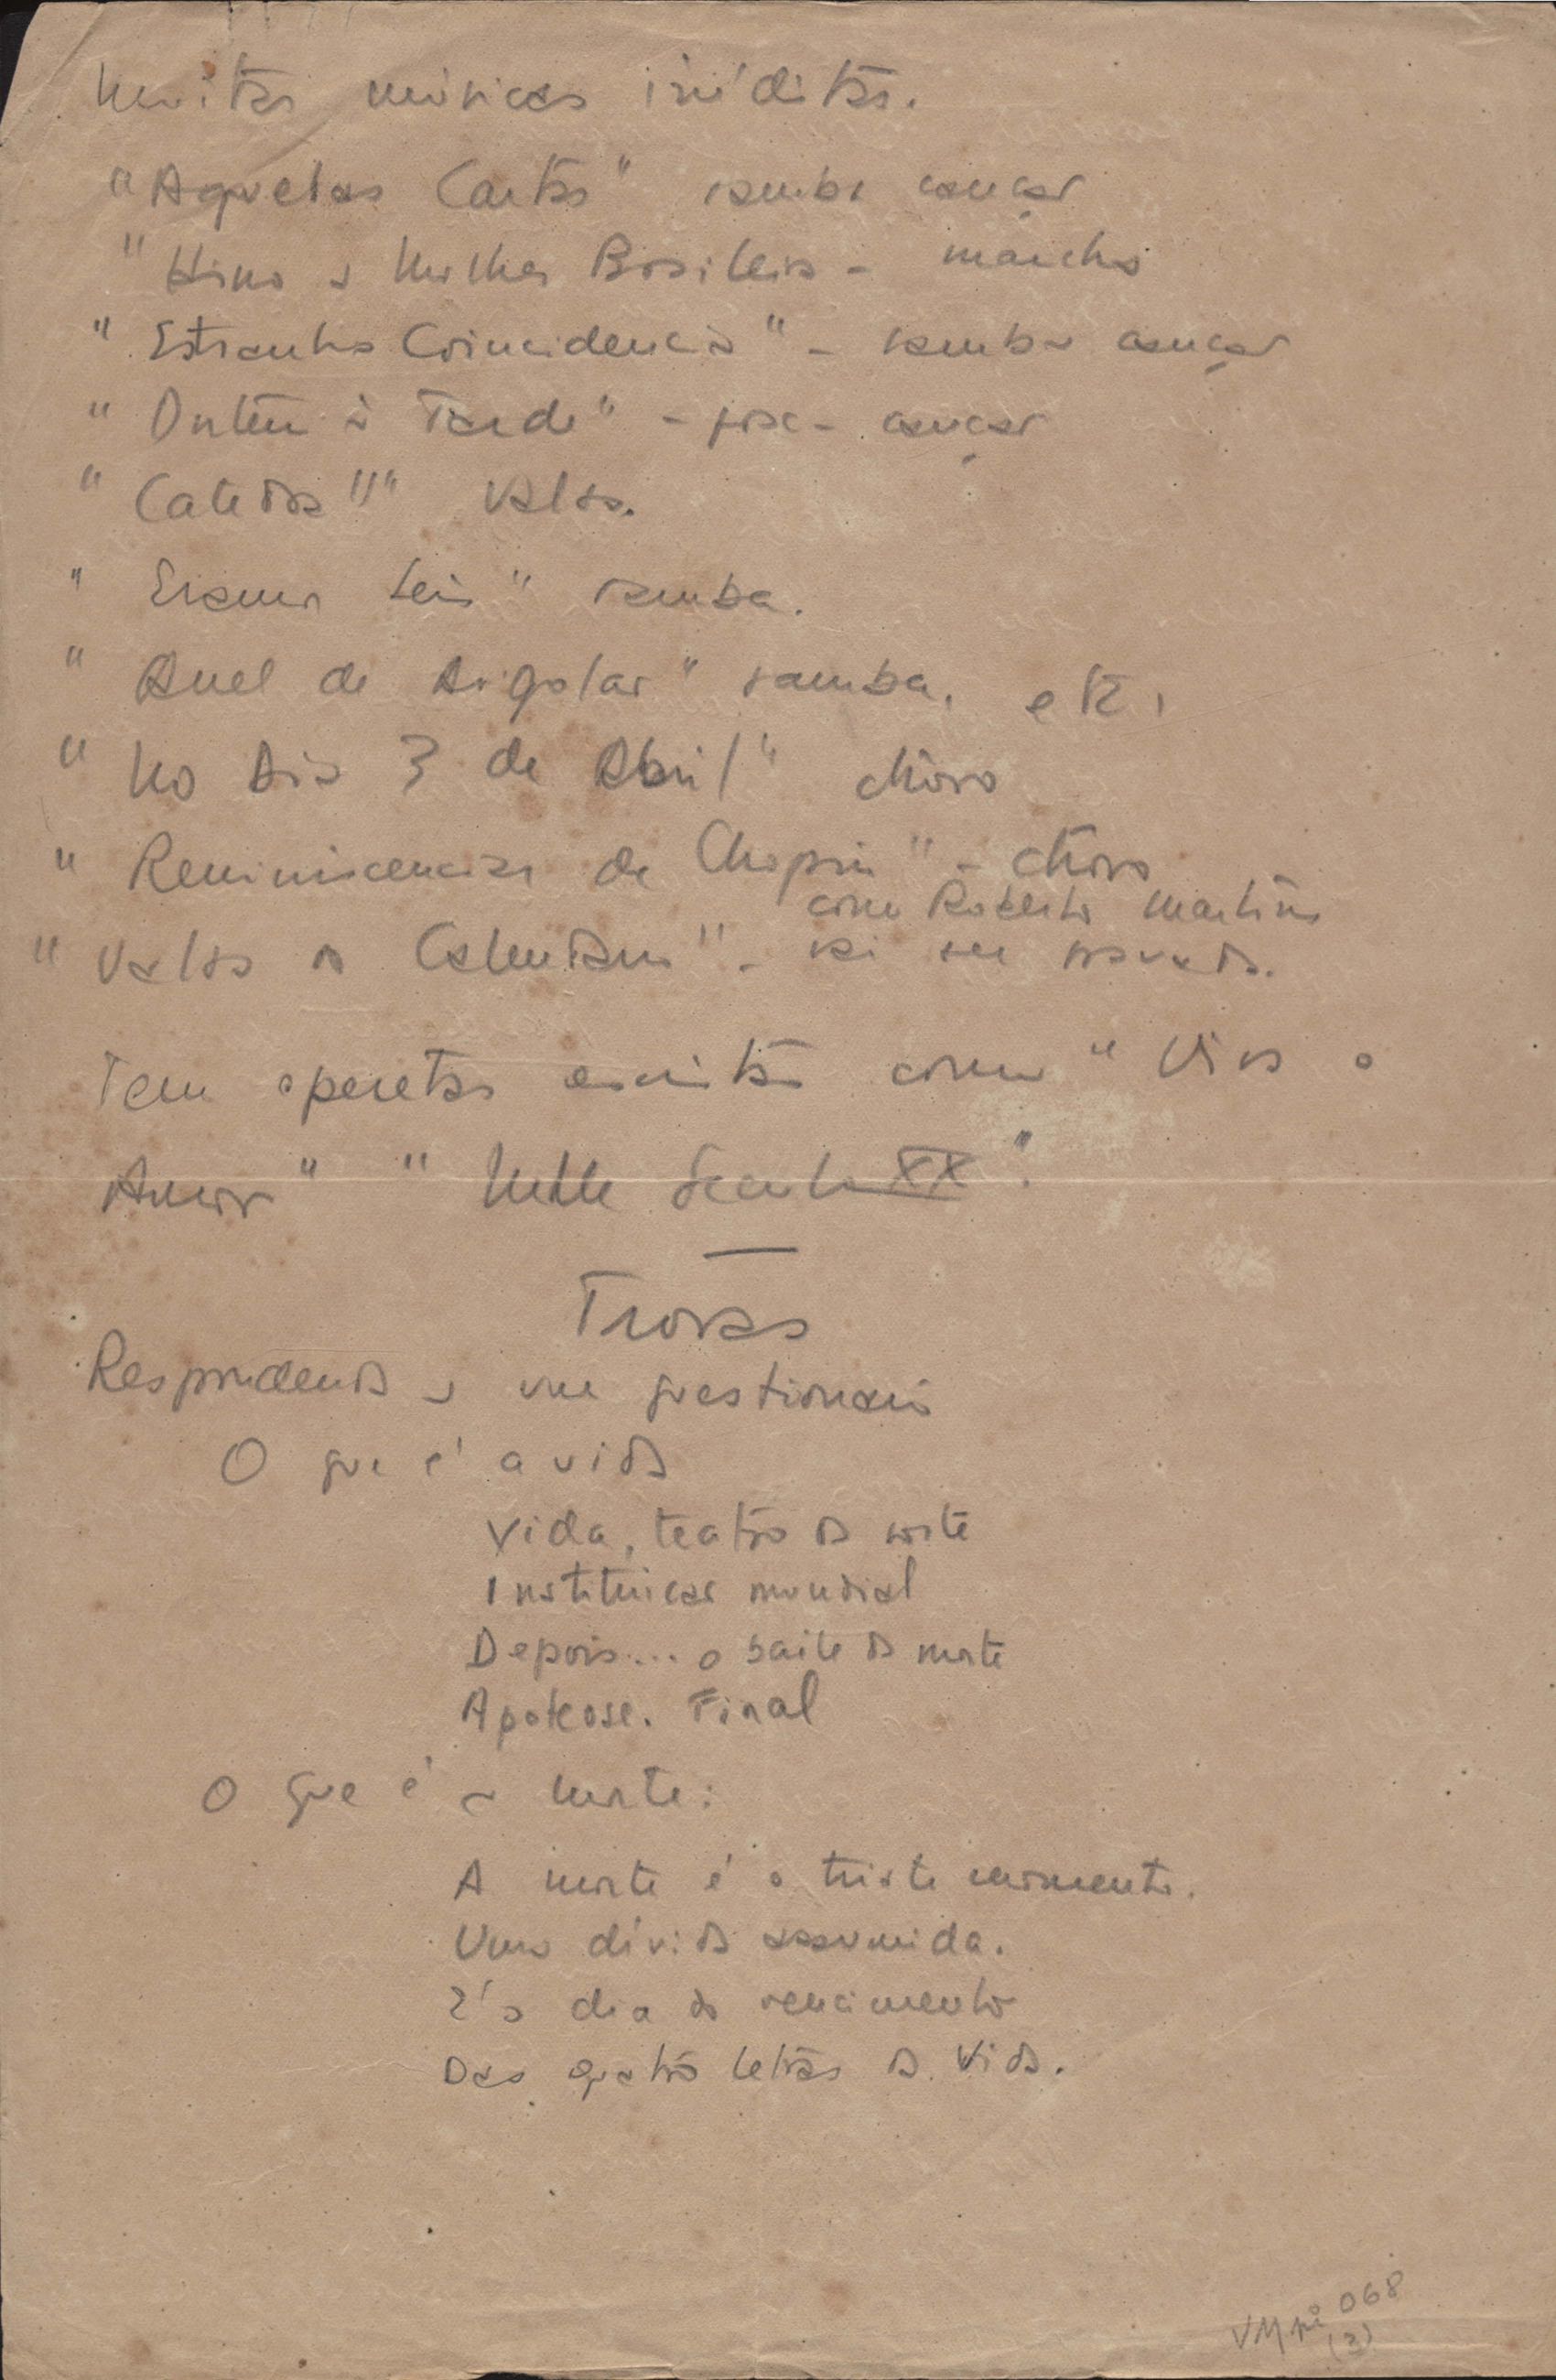 Muitas músicas inéditas.
"Aquelas Cartas" samba canção
"Hino a Mulher Brasileira - marcha
"Estranha Coincidencia" - samba canção
"Ontem à Tarde" - fox - canção
"Catedral" valsa.
" Eramos Seis" samba.
"Anel de Argolar" samba, etc.
"No Dia 3 de Abril" choro
"Reminiscencias de Chopin" - choro
com Roberto Martins
"Valsa do Calendario" - vai ser gravada.
Tem operetas escritas como "Viva o
Amor" " Mlle Seculo XX".
Trovas
Respondendo a um questionario
O que é a vida
Vida, teatro da sorte
Instituicao mundial
Depois... o baile da morte
Apoteose. Final
O que é a morte:
A morte é o triste momento.
Uma dívida assumida.
É o dia do vencimento
Das quatro letras da Vida.
VMpi 068
(2)